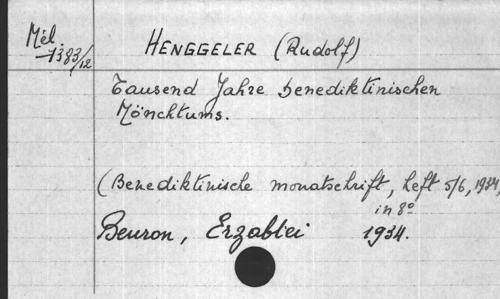 Mél. HENGGELER (Rudolf)
1383/12
Tausend Jahre benediktinischen
Mönchtums.
(Benediktinische monatschrift, heft 5/6, 1934,
in 8º
Beuron, Erzabtei 1934.